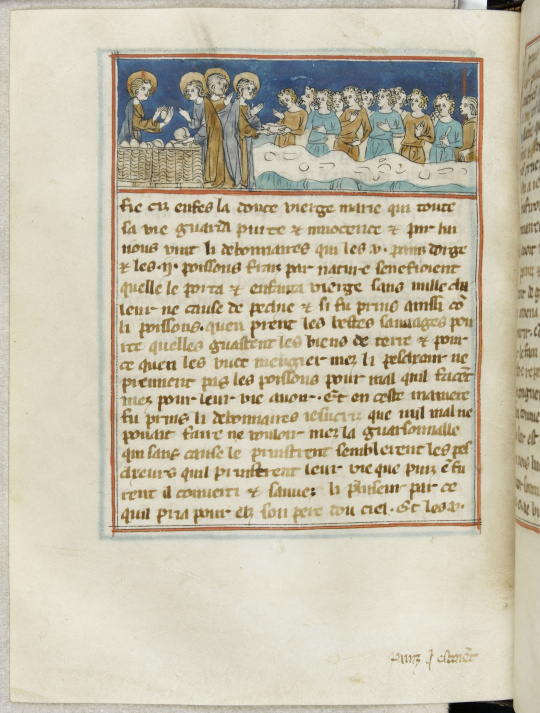 fie ciz enfes la douce vierge marie qui toute
sa vie guarda purte & innocence & par lui
nous vint li debonnaires qui les .v. pains dorge
& les .ij. poissons frains par nature senefioient
quelle le porta & enfanta vierge sans nulle cha
leur ne cause de pechie & si fu prins ainssi cō
li poissons. quen prent les bestes sauuages pour
ce quelles guastent les biens de terre & pour
ce quen les vuet mengier mez li peschour ne
prennent pas les poissons pour mal quil facēt
mez pour leur vie auoir. Et en ceste maniere
fu prins li debonnaires iesucriz que nul mal ne
pouait faire ne vouloir mez la
qui sans cause le prinstrent semblerent les pes
cheurs quil prinstrent leur vie que puiz ē fu
rent il conuerti & sauuez li pluseur par ce
quil pria pour elz son pere dou ciel. Et les .v.
painz